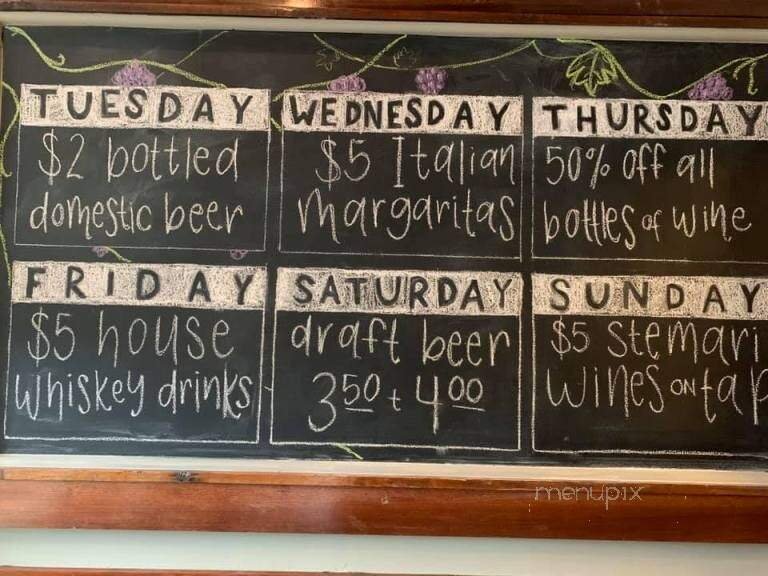 TUESDAY
$2 bottled
domestic beer
WEDNESDAY
$5 Italian
margaritas
THURSDAY
50% off all
bottles of wine
FRIDAY
$5 house
whiskey drinks
SATURDAY
draft beer
3.50 + 4.00
SUNDAY
$5 stemari
wines on tap
menupix